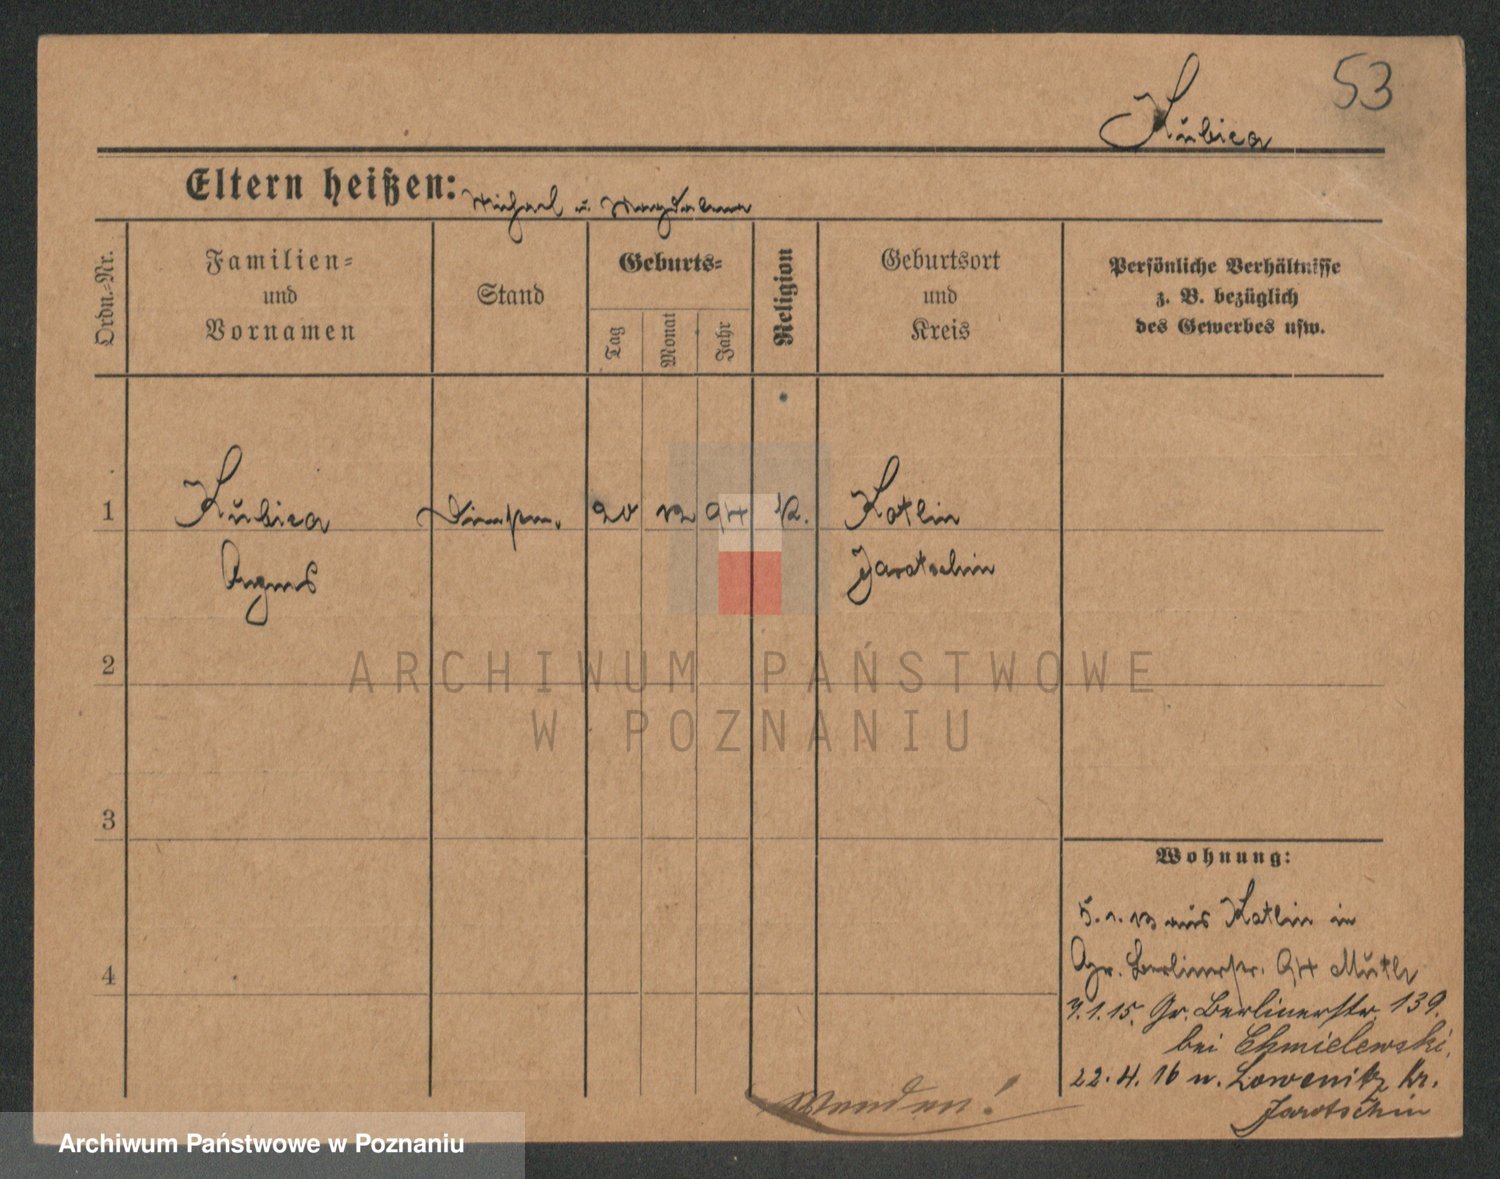 53
Kubica
Eltern heißen: Michael u. Magdalena
Ordn.-Nr.
Familien-
und
Vornamen
Stand
Geburts-
Tag
Monat
Jahr
Religion
Geburtsort
und
Kreis
Persönliche Verhältnisse
z. B. bezüglich
des Gewerbes usw.
1 Kubica 20 12 94 k. Kotlin
Agnes Jarotschin
2
3
4
Wohnung:
5.1.13 aus Kotlin in
Gr. Berlinerstr. 94
7.1.15. Gr. Berlinerstr. 139.
bei Chmielewski.
22.4.16 n. Kr.
Jarotschin
Wenden!
ARCHIWUM PAŃSTWOWE
W POZNANIU
Archiwum Państwowe w Poznaniu